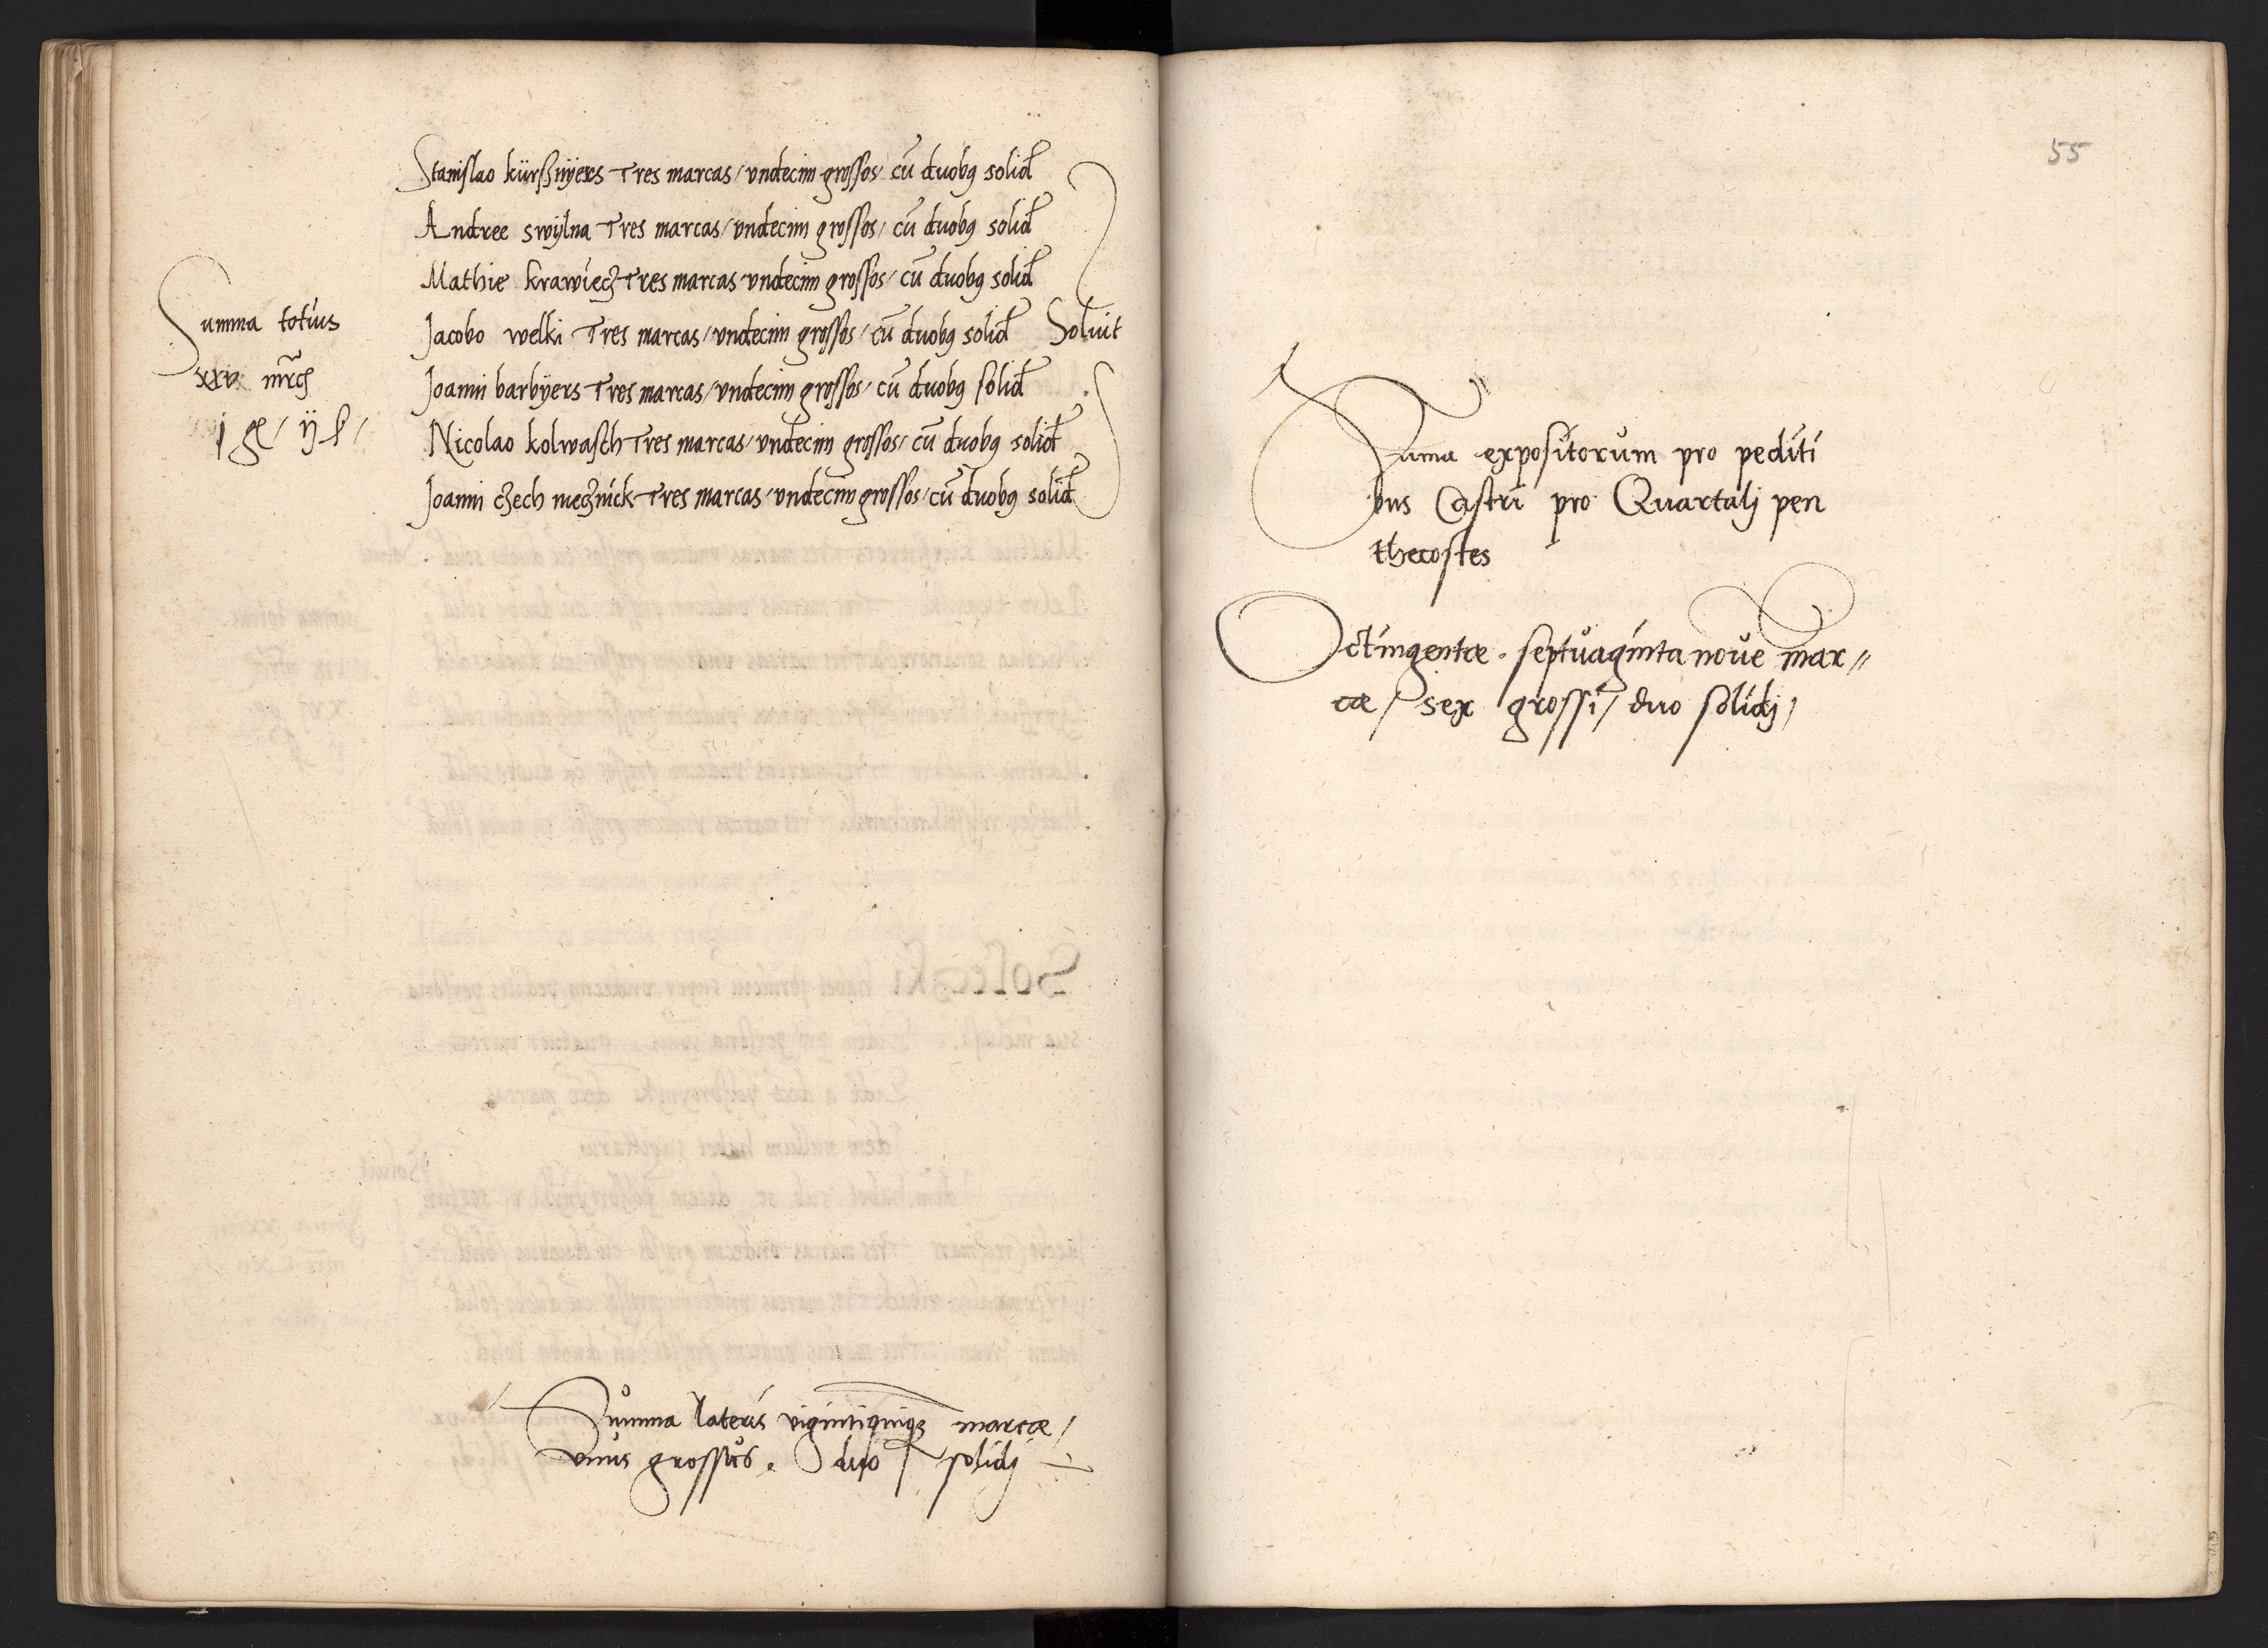 Stanislao kürsznÿers Tres marcas / vndecim grossos / cū duobꝫ solid
Andree swÿlna Tres marcas / vndecim grossos / cū duobꝫ solid
Mathie krawiecz Tres marcas / vndecim grossos / cū duobꝫ solid
Jacobo welki Tres marcas / vndecim grossos / cū duobꝫ solid
Joanni barbÿers Tres marcas / vndecim grossos / cū duobꝫ solid
Nicolao kolwasch Tres marcas / vndecim grossos / cū duobꝫ solid
Joanni czech mecznick Tres marcas / vndecim grossos / cū duobꝫ solid
Soluit
Summa totius
xxv mrc
j g / ij s /
Summa lateris vigintiquiqꝫ marcæ /
vnus grossus . duo solidj
55
Suma expositorum pro pediti
bus Castri pro Quartalj pen
thecostes
Octingentæ . septuaginta noue mar//
cæ / sex grossi / duo solidj /